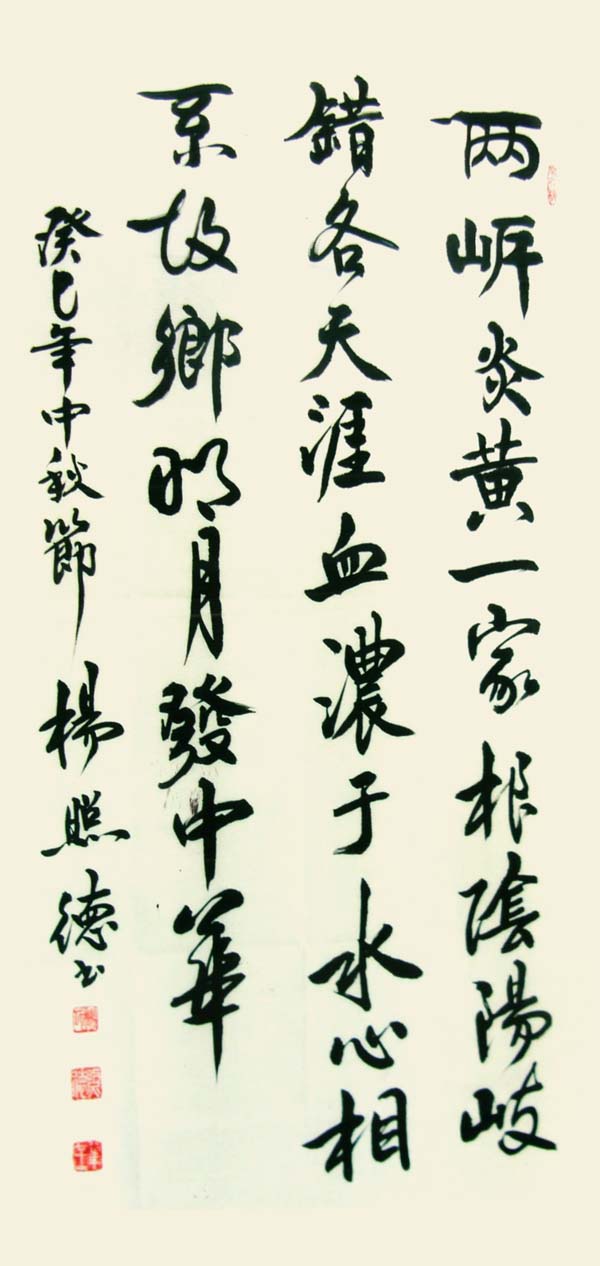 两岸炎黄一家根陰陽歧
錯各天涯血濃于水心相
系故鄉明月發中華
癸巳年中秋節 楊照德书